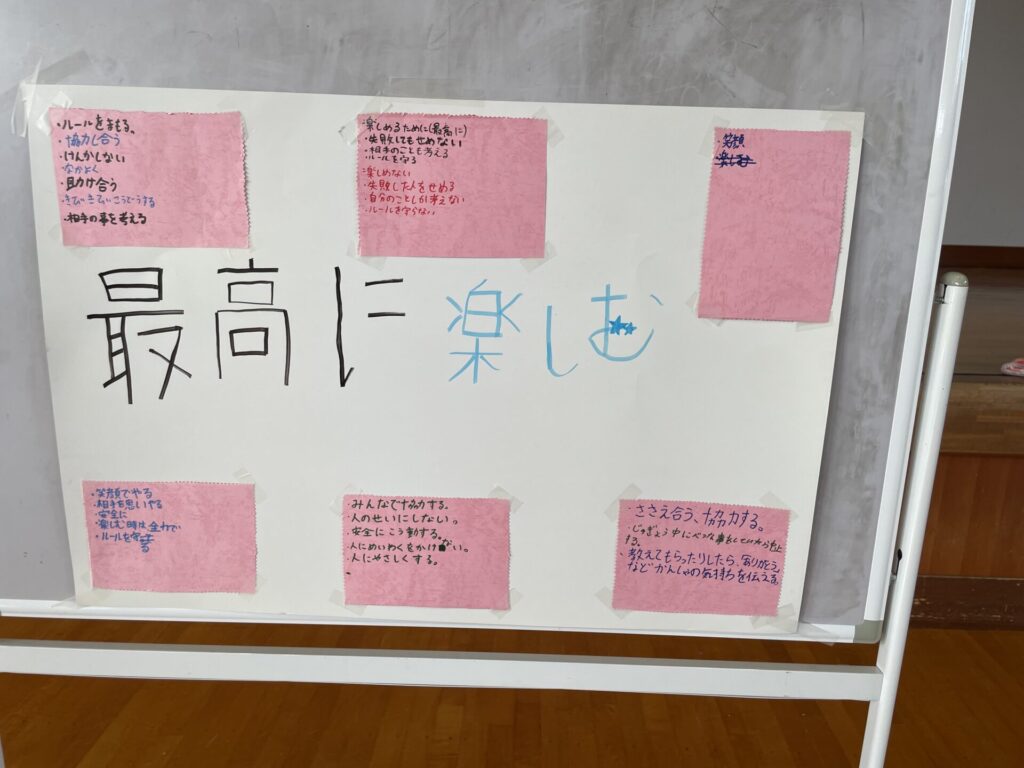 ・ルールをまもる。
・協力し合う
・けんかしない
・なかよく
・助け合う
・きびきびこうどうする
・相手の事を考える
楽しめるために(最高に)
・失敗してもせめない
・相手のことも考える
・ルールを守る
楽しめない
・失敗した人をせめる
・自分のことしか考えない
・ルールを守らない
・笑顔
最高に楽しむ
・笑顔でやる
・相手を思いやる
・安全に
・楽しむ時は全力で
・ルールを守る
・みんなで協力する。
・人のせいにしない。
・安全にこう動する。
・人にめいわくをかけない。
・人にやさしくする。
・ささえ合う、協力する。
・じゅぎょう中に
する。
・教えてもらったりしたら、ありがとう
などかんしゃの気持ちを伝える。